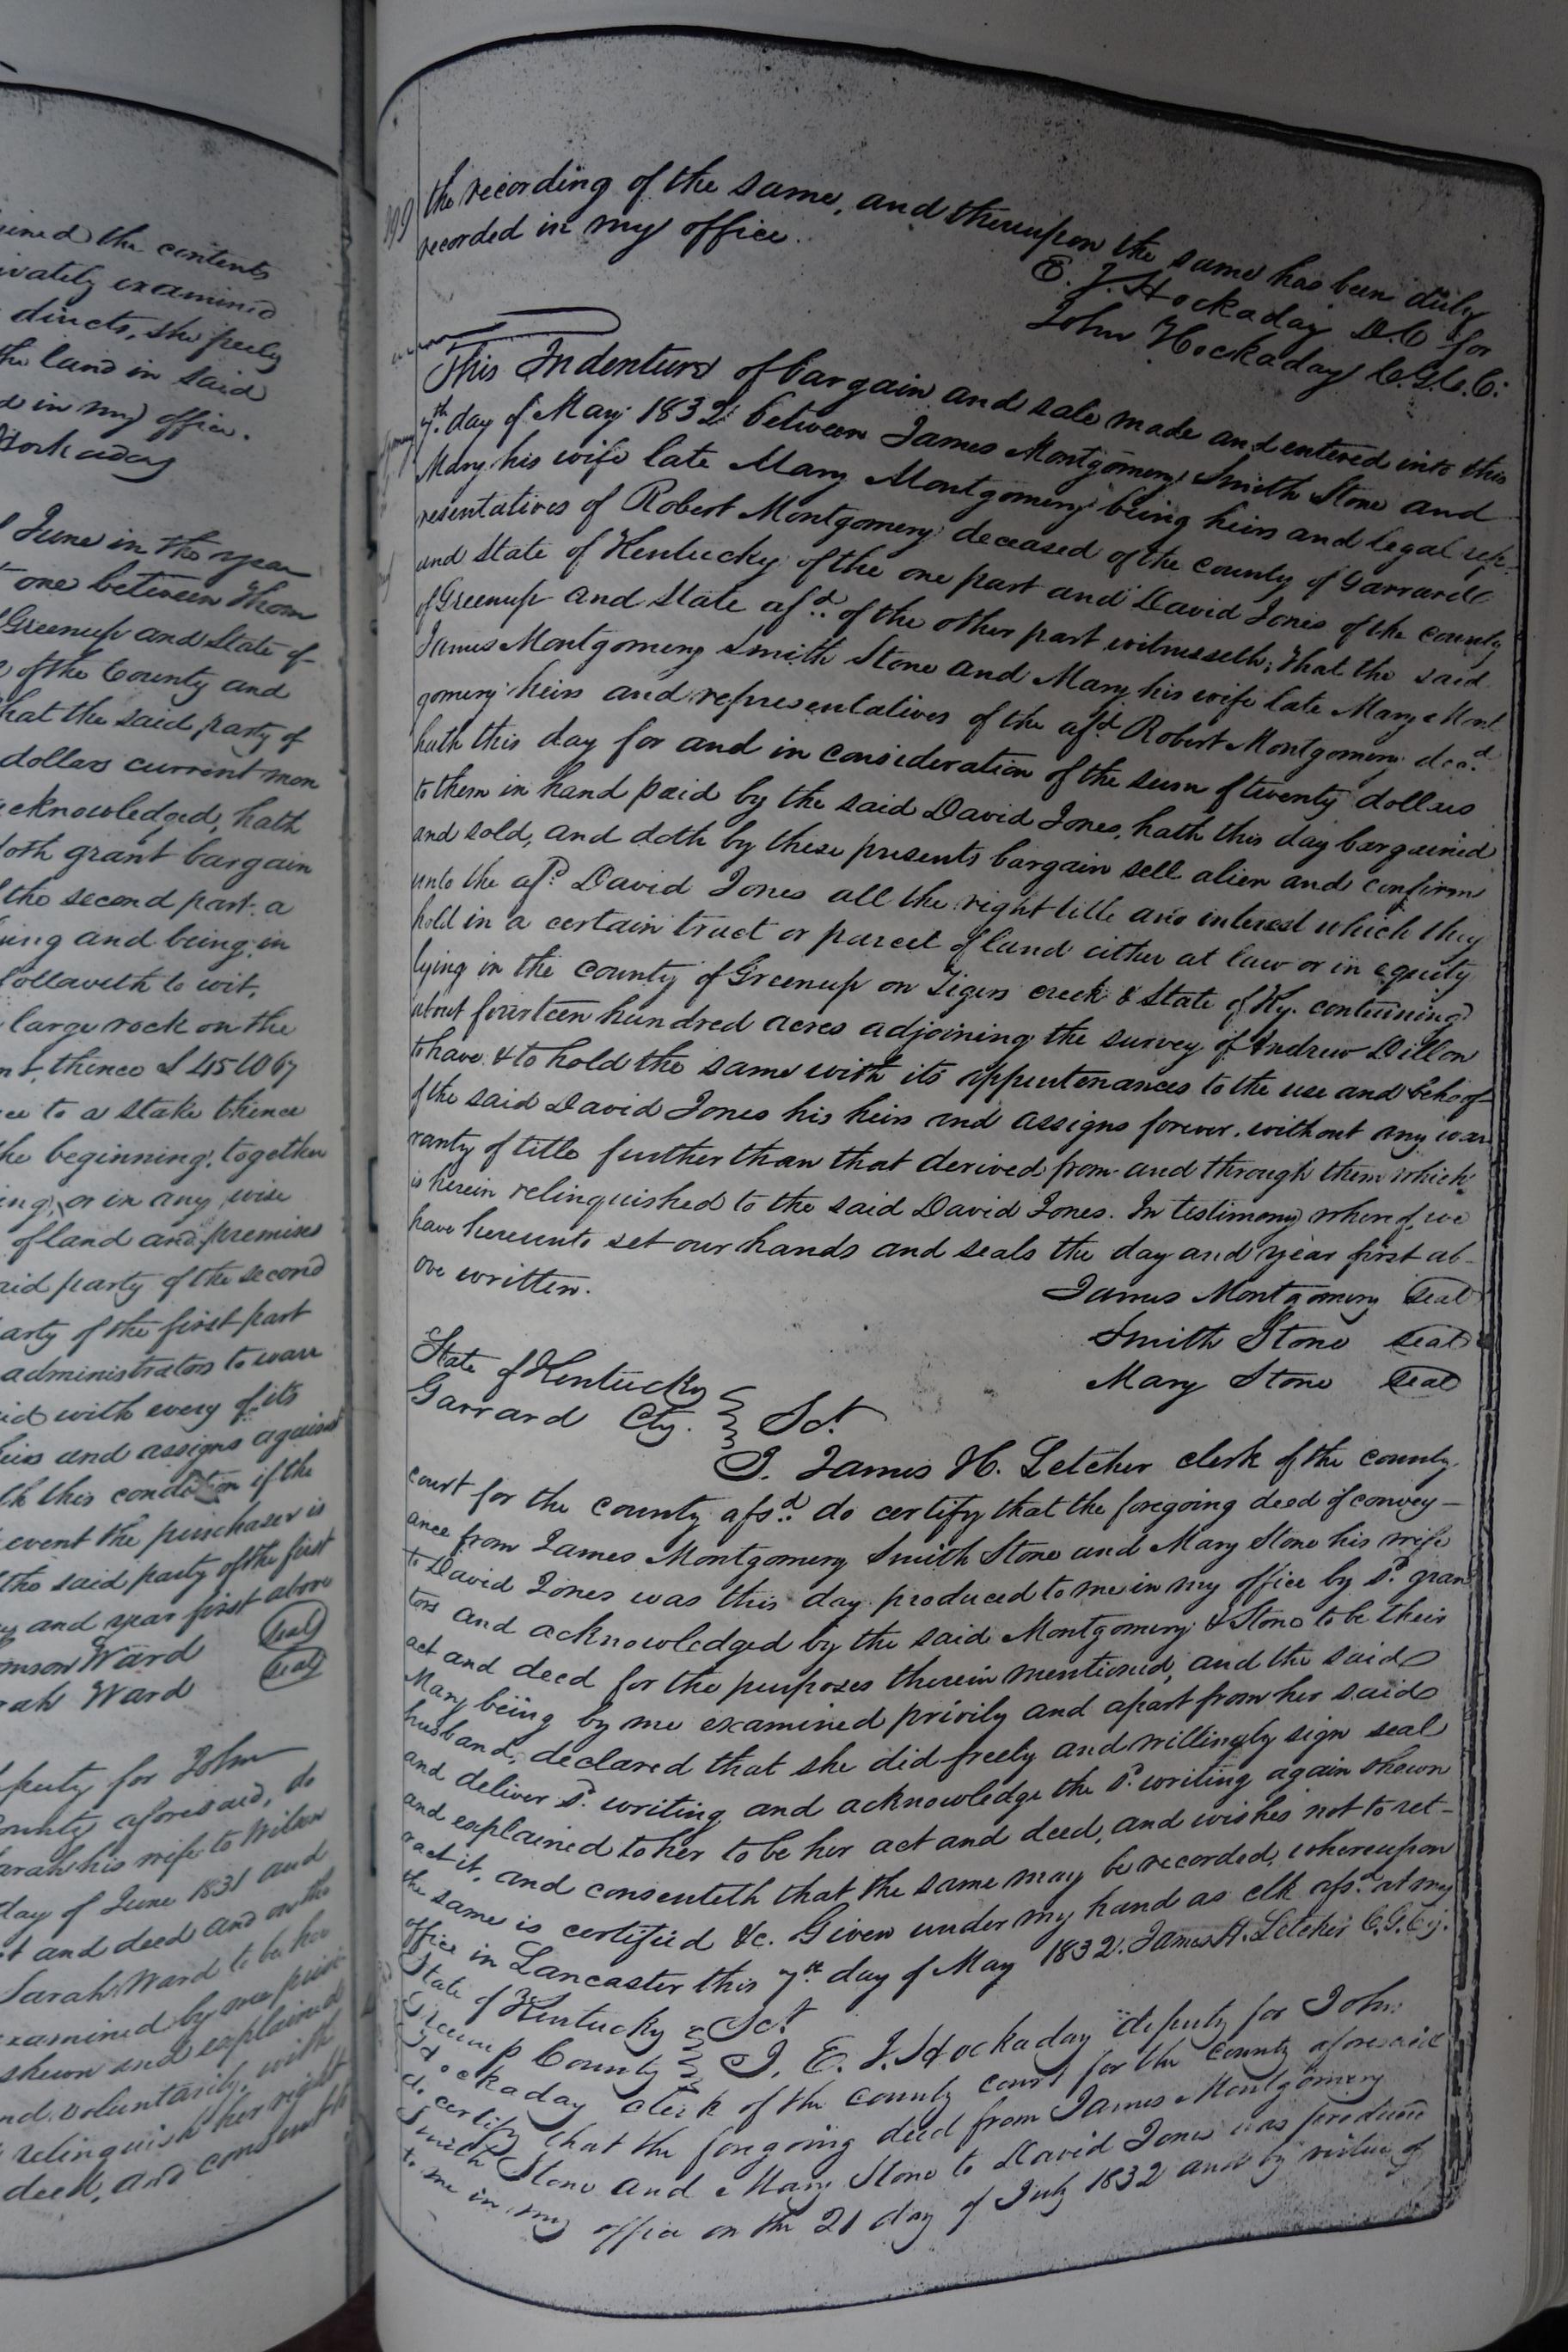 ined the contents
ivately examined
directs, she freely
the land in said
d in my office.
Hockaday
June in the year
one between Thom
Greenup and State of
of the County and
hat the said party of
dollars current mon
acknowledged, hath
doth grant bargain
the second part. a
ing and being in
followeth to wit,
large rock on the
thence S 45 W 67
ce to a stake thence
the beginning, together
ing, or in any wise
of land and premises
aid party of the second
arty of the first part
administrators to warr
id with every of its
heirs and assigns against
th this condition if the
event the purchaser is
the said party of the first
and year first above
omson Ward (seal)
rah Ward (seal)
puty for John
ounty aforesaid, do
arah his wife to Wilson
day of June 1831 and
ct and deed and on the
Sarah Ward to be her
examined by me priv
shewn and explained
nd voluntarily, with
relinquish her right
deed, and consenteth
199
the recording of the same, and thereupon the same has been duly
recorded in my office.
E. J. Hockaday D.C for
John Hockaday C.G.C.C.
This Indenture of bargain and sale made and entered into this
7th. day of May 1832 between James Montgomery Smith Stone and
Mary his wife late Mary Montgomery being heirs and legal rep-
resentatives of Robert Montgomery deceased of the county of Garrard
and State of Kentucky of the one part and David Jones of the county
of Greenup and State afd. of the other part witnesseth; That the said
James Montgomery Smith Stone and Mary his wife late Mary Mont
gomery heirs and representatives of the afd Robert Montgomery decd.
hath this day for and in consideration of the sum of twenty dollars
to them in hand paid by the said David Jones, hath this day bargained
and sold, and doth by these presents bargain sell alien and confirm
unto the afd. David Jones all the right title and interest which they
hold in a certain tract or parcel of land either at law or in equity
lying in the county of Greenup on Tigers creek & State of Ky. containing
about fourteen hundred acres adjoining the survey of Andrew Dillon
to have & to hold the same with its appurtenances to the use and behoof
of the said David Jones his heirs and assigns forever. without any war
ranty of title further than that derived from and through them which
is herein relinquished to the said David Jones. In testimony whereof, we
have hereunto set our hands and seals the day and year first ab-
ove written.
James Montgomery (seal)
Smith Stone (seal)
Mary Stone (seal)
State of Kentucky
Garrard Cty. } Sct.
I. James H. Letcher clerk of the county
court for the county afsd. do certify that the foregoing deed of convey-
ance from James Montgomery Smith Stone and Mary Stone his wife
to David Jones was this day produced to me in my office by sd. gran
tors and acknowledged by the said Montgomery & Stone to be their
act and deed for the purposes therein mentioned, and the said
Mary being by me examined privily and apart from her said
husband, declared that she did freely and willingly sign seal
and deliver sd. writing and acknowledge the sd. writing again shown
and explained to her to be her act and deed, and wishes not to ret-
ract it, and consenteth that the same may be recorded, whereupon
the same is certified &c. Given under my hand as clk afsd. at my
office in Lancaster this 7th day of May 1832. James H. Letcher C.G.Cy.
State of Kentucky } Sct.
Greenup County } I, E. J. Hockaday deputy for John
Hockaday clerk of the county court for the county aforesaid
do certify that the foregoing deed from James Montgomery
Smith Stone and Mary Stone to David Jones was produced
to me in my office on the 21 day of July 1832 and by virtue of